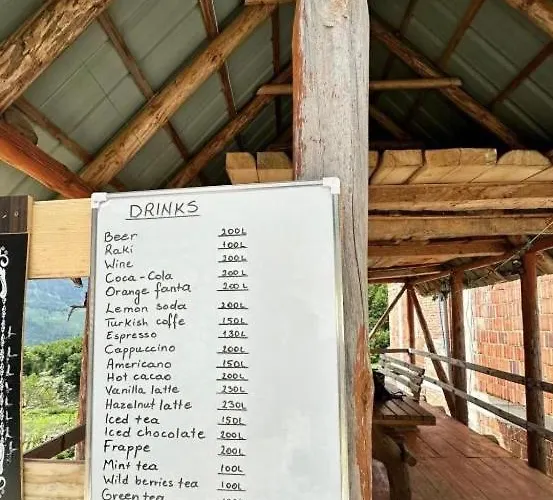 DRINKS
Beer 200L
Raki 100L
Wine 200L
Coca-Cola 200L
Orange fanta 200L
Lemon soda 200L
Turkish caffe 150L
Espresso 130L
Cappuccino 200L
Americano 150L
Hot cacao 200L
Vanilla latte 230L
Hazelnut latte 230L
Iced tea 150L
Iced chocolate 200L
Frappe 200L
Mint tea 100L
Wild berries tea 100L
Green tea